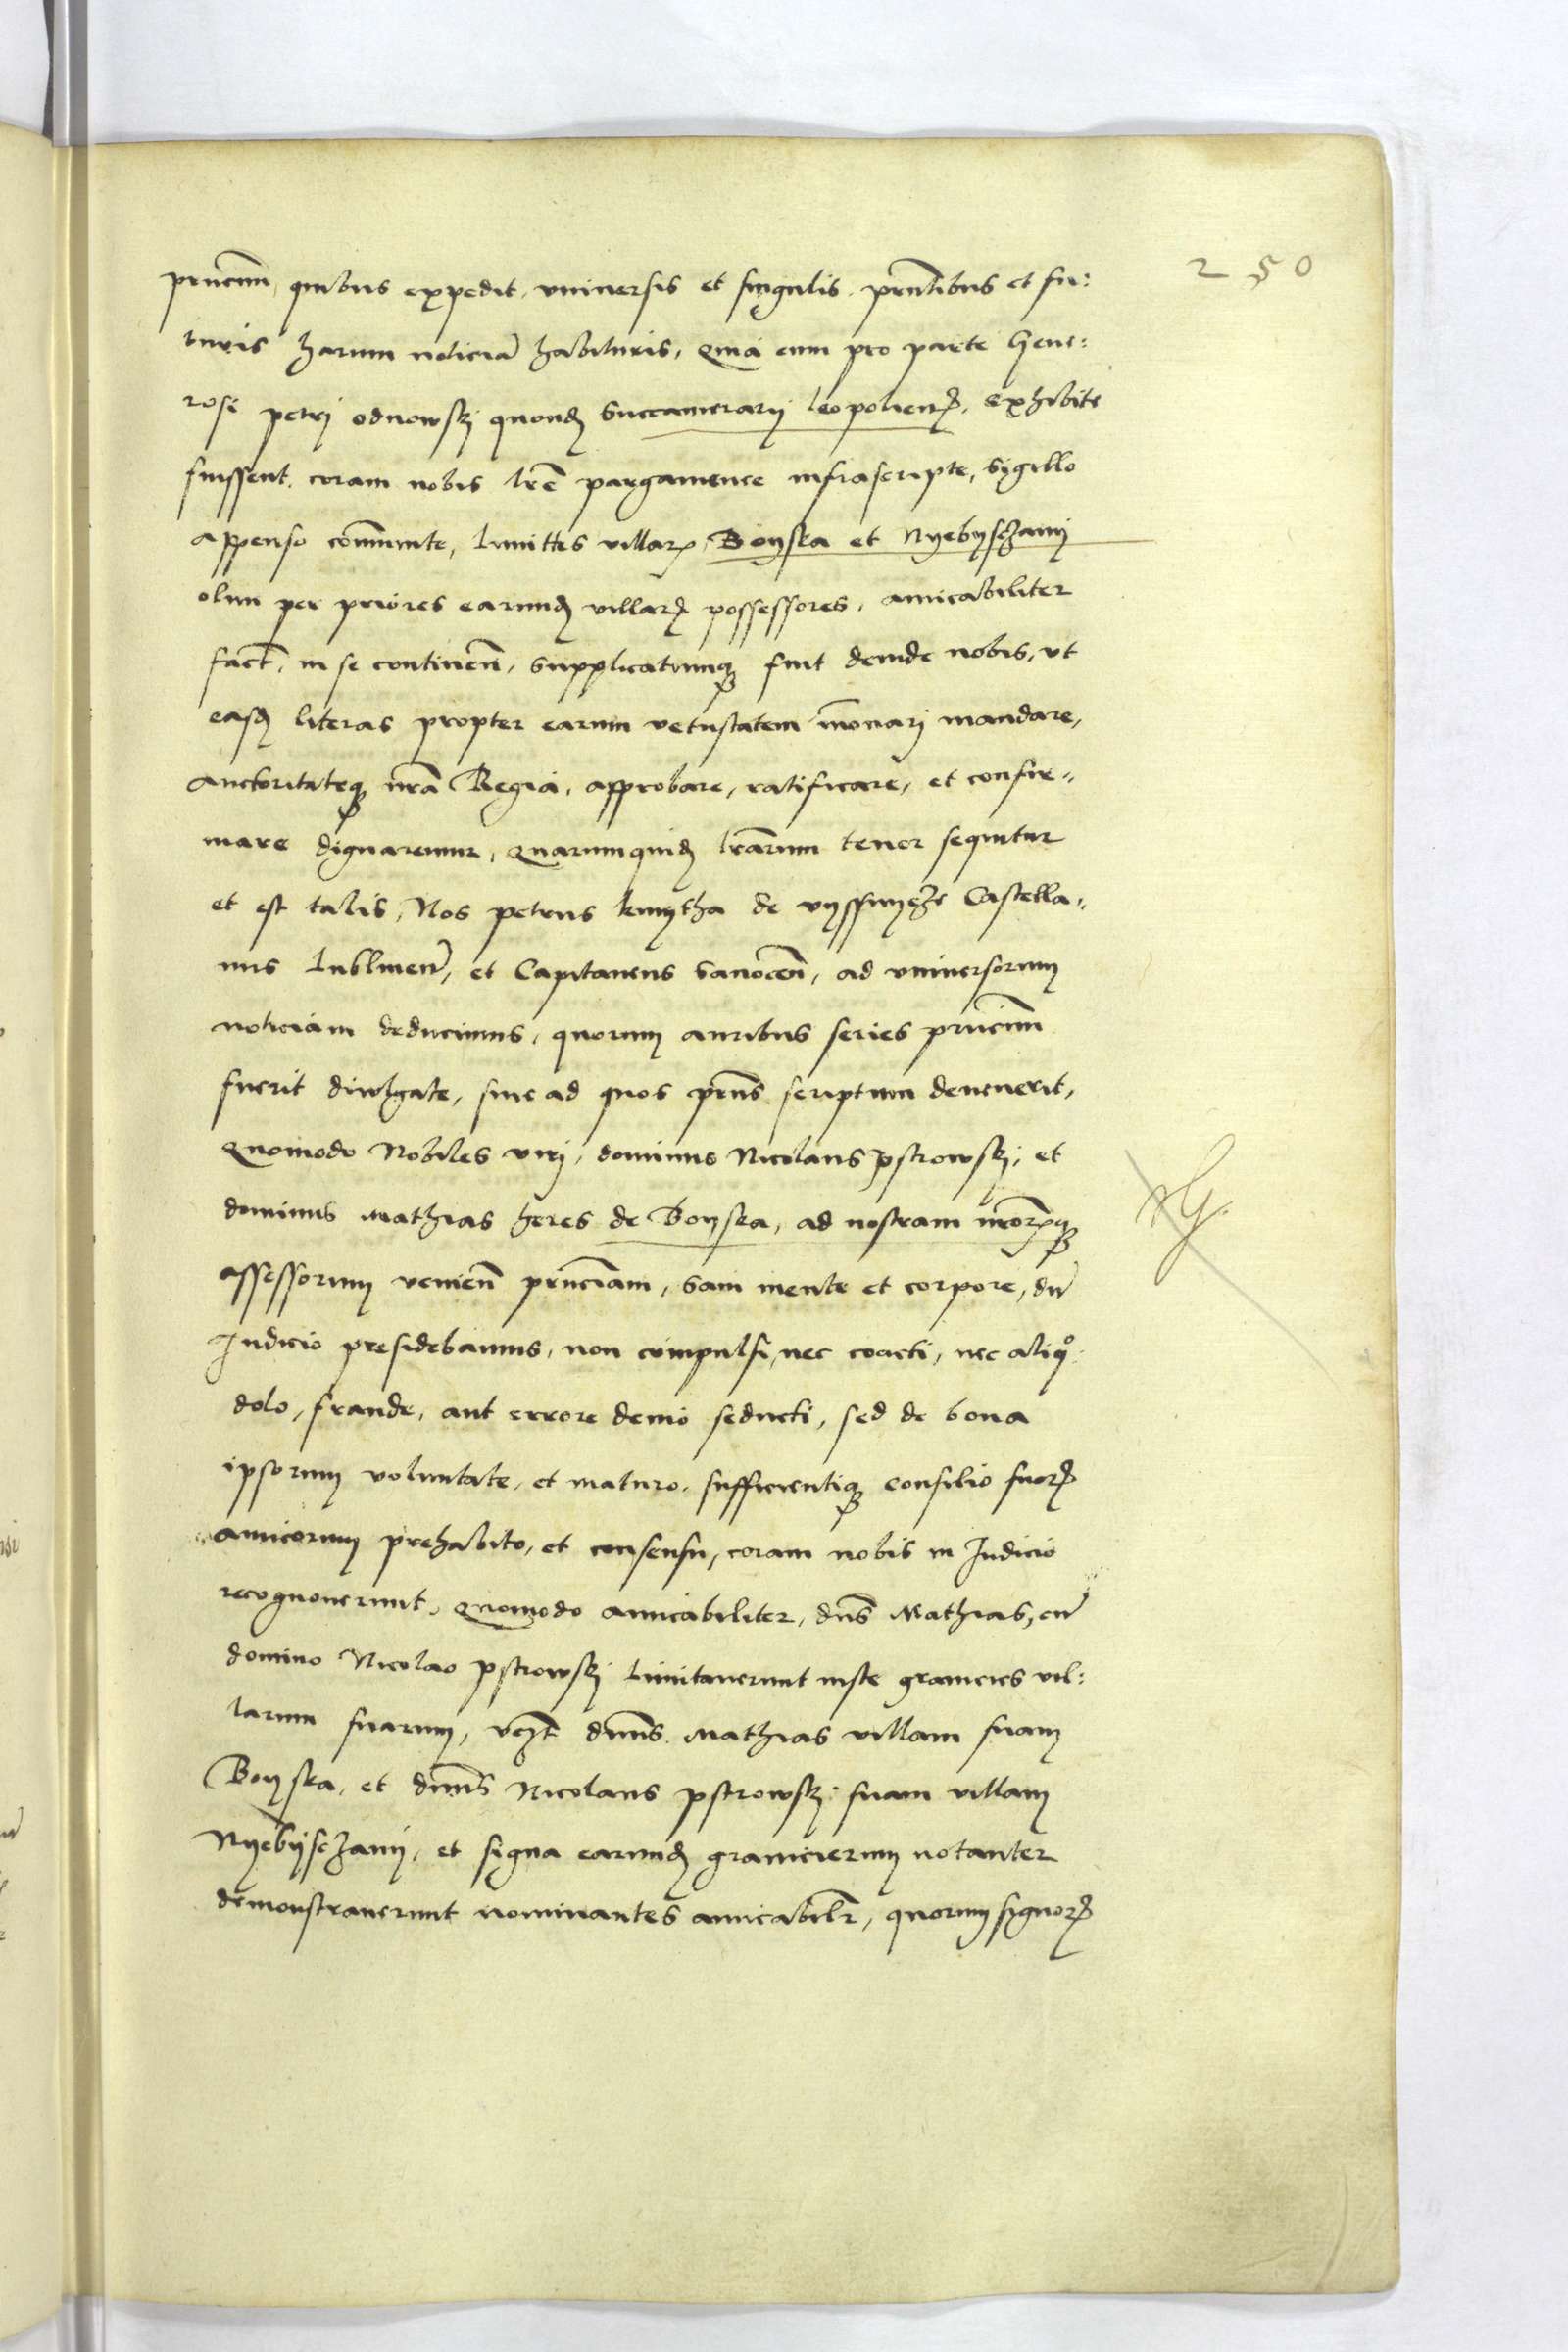 250
prncium, quibus expedit, vniuersis et singulis, prntibus et fu:
turis harum noticiã habituris, Quia cum pro parte Gene:
rosi petri odnowskj quond Succamerarij leopolien, exhibite
fuissent, coram nobis lrẽ pargamenee infrascripte, Sigillo
appenso com̃unite, limittes villarꝝ Boyska et Nyebyschany
olim per priores earund villarꝝ possessores, amicabiliter
fact, in se continen̄, Supplicatumqꝫ fuit deinde nobis, vt
easd literas propter earum vetustatem innouari mandare,
auctoritateqꝫ nrã Regia, approbare, ratificare, et confir-
mare dignaremur, Quarumquid lrãrum tenor sequitur
et est talis, Nos petrus kmytha de vyssnycze Castella-
nus lublinen̄, et Capitaneus Sanocen̄, ad vniuersorum
noticiam deducimus, quorum auribus series prncium
fuerit diwlgate, siue ad quos prñs scriptum deuenerit,
Quomodo Nobiles virj, dominus Nicolaus pstrowskj, et
dominus Mathias heres de Boyska, ad nostram nrorꝝqꝫ
assessorum venien̄ prnciam, Sani mente et corpore, dũ
Judicio presidebamus, non compulsi, nec coacti, nec aliqo
dolo, fraude, aut errore deuio seducti, sed de bona
ipsorum voluntate, et maturo, sufficientiqꝫ consilio suorꝝ
amicorum prehabito, et consensu, coram nobis in Judicio
recognouerunt, Quomodo amicabiliter, dñs Mathias, cũ
domino Nicolao pstrowskj limitauerunt iuste granicies vil:
larum suarum, vczt dnñs Mathias villam suam
Boyska, et dnñs Nicolaus pstrowskj suam villam
Nyebyschany, et signa earund granicierum notanter
demonstrauerunt nominantes amicabilr, quorum signorꝝ